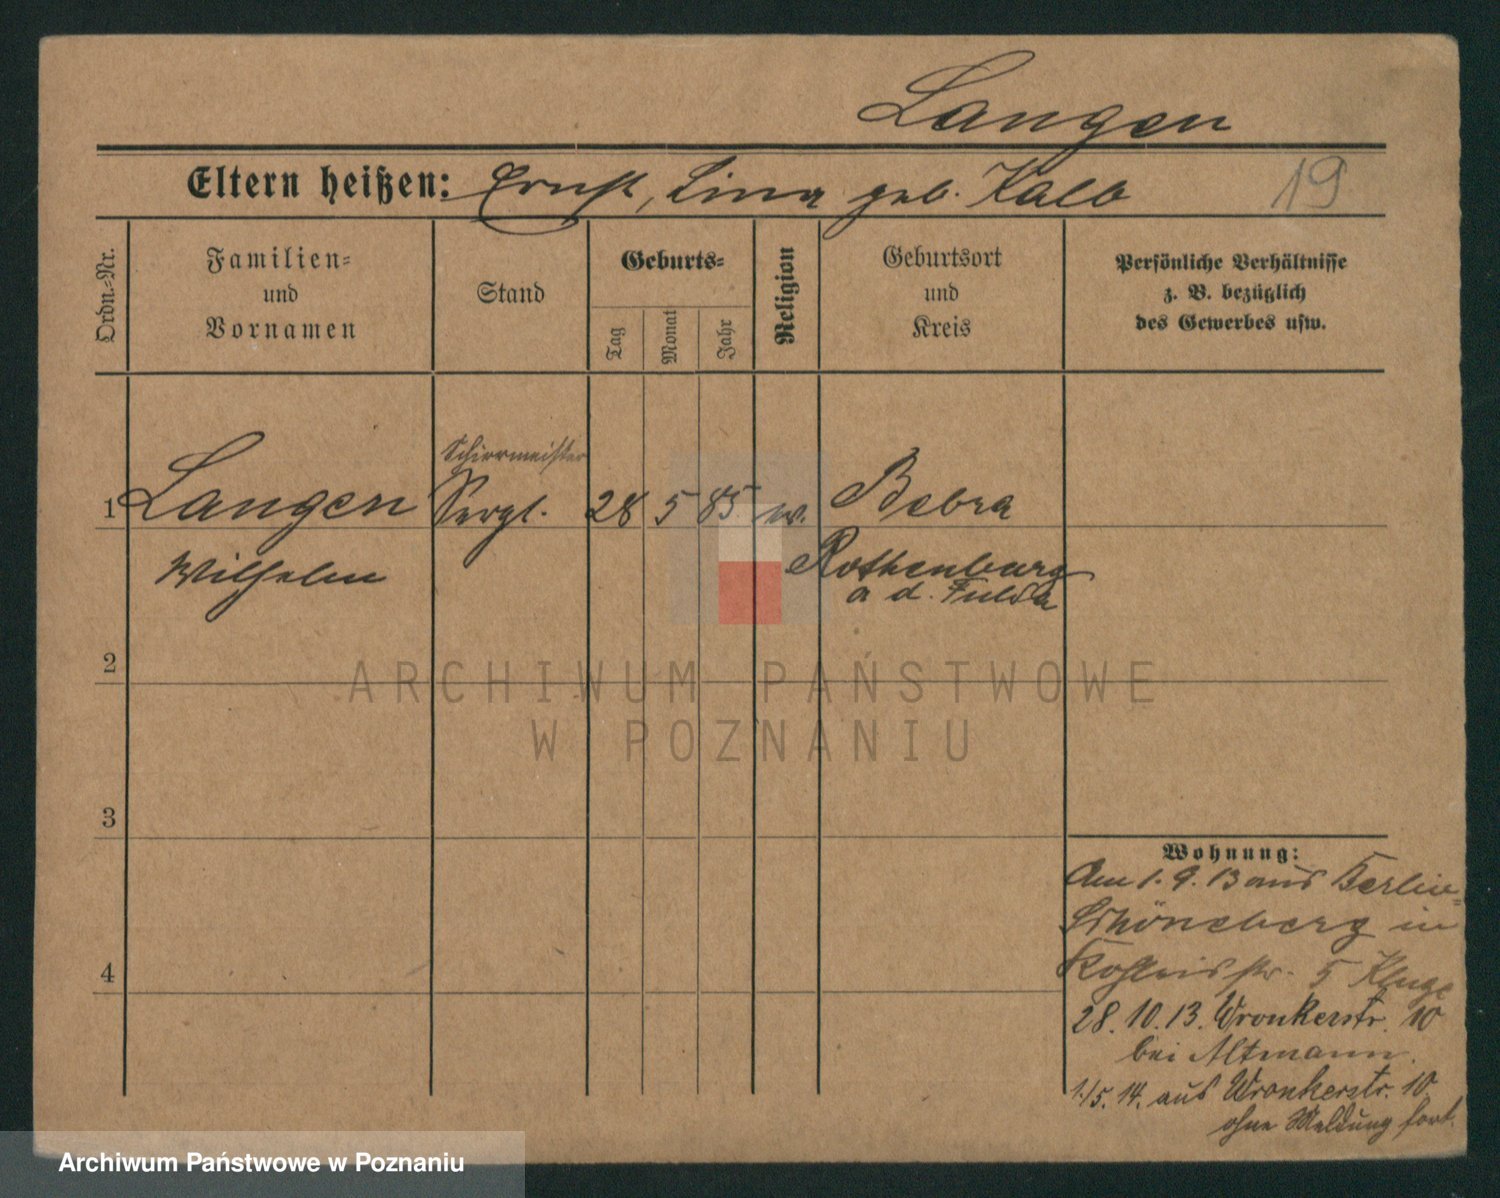 Langen
Eltern heißen: Ernst, Lina geb. Kalb
19
Ordn.-Nr.
Familien-
und
Vornamen
Stand
Geburts-
Tag
Monat
Jahr
Religion
Geburtsort
und
Kreis
Persönliche Verhältnisse
z. B. bezüglich
des Gewerbes usw.
Schirrmeister
1 Langen Sergt. 28 5 85 Bebra
Wilhelm Rothenburg
a d. Fulda
2
3
4
Wohnung:
Am 1. 9. 13 aus Berlin-
Schöneberg in
5 Kluge
28. 10. 13. Wronkerstr. 10
bei Altmann.
1./5. 14. aus Wronkerstr. 10.
ohne Meldung fort.
ARCHIWUM PAŃSTWOWE
W POZNANIU
Archiwum Państwowe w Poznaniu